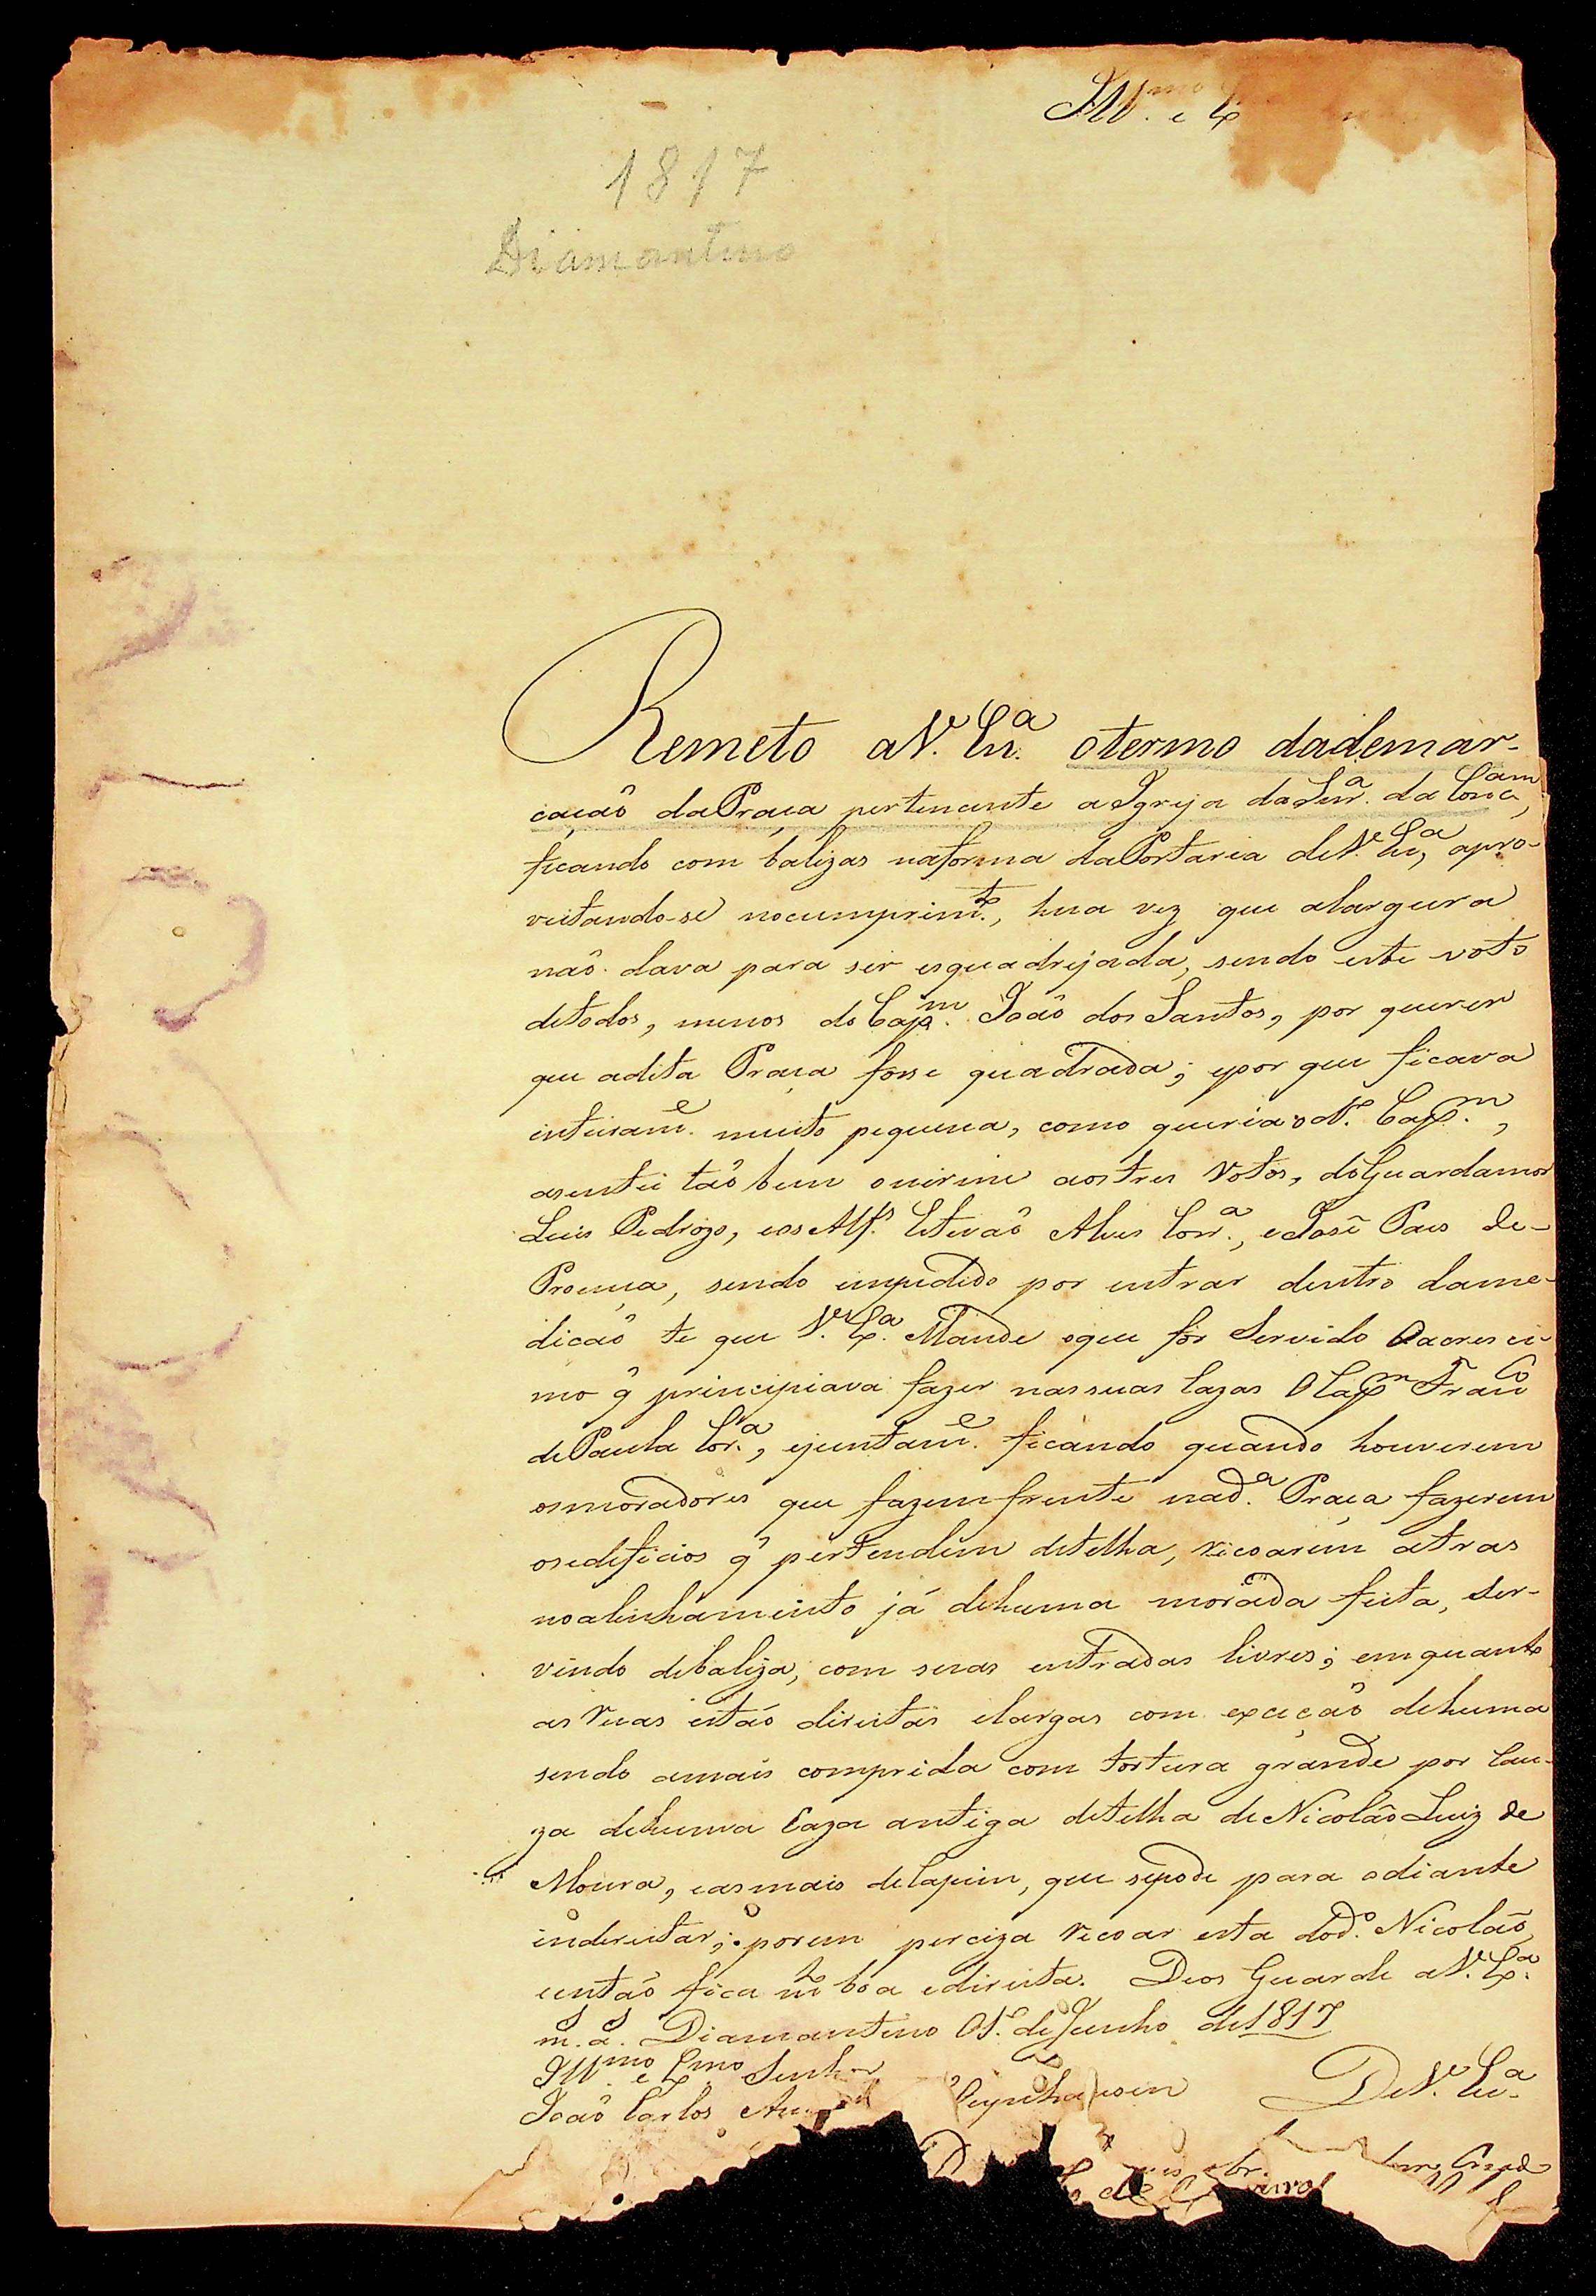 Ill.mo e Ex
1817
Diamantino
Remeto aV. Ex.a otermo dademar-
cação daPraça pertencente a Igreja daSnr.a da Conc.am,
ficando com balizas naforma daPortaria deV. Ex.a, apro-
veitando-se nocumprim.to, hua vez que alargura
não dava para ser esquadrejada, sendo este voto
detodos, menos do Cap.m João dos Santos, por querer
que adita Praça fosse quadrada; epor que ficava
inteiram.e muito pequena, como queria od.o Cap.m,
asentei tão bem onirme aostres Votos, doGuardamor
Luis Pedrozo, eos Alf.s Estevaõ Alves Corr.a, eJosé Paes de-
Proença, sendo impedido por entrar dentro dame-
dicaõ te que V. Ex.a Mande oque fôr Servido Oacresci-
mo q principiava fazer nassuas Cazas O Cap.m Fran.co
dePaula Cor.a, ejuntam.e ficando quando houverem
osmoradores que fazemfrente nad.a Praça fazerem
osedificios q pertendem detelha, recoarem atras
noalinhamento já dehuma morada feita, ser-
vindo debaliza, com suas entradas livres; emquanto
as ruas estão direitas elargas com exceção dehuma
sendo amais comprida com tortura grande por cau-
za dehuma Caza antiga detelha de Nicoláo Luiz de
Moura, easmais deCapim, que sepode para odiante
indereitar; porem perciza recoar esta dod.o Nicoláo,
eentão fica m.to boa edireita. Deos Guarde aV. Ex.a
m. a. Diamantino 01.o deJunho de1817
Ill.mo e Ex.mo Senhor
João Carlos Au Oeynhausen DeV. Ex.a